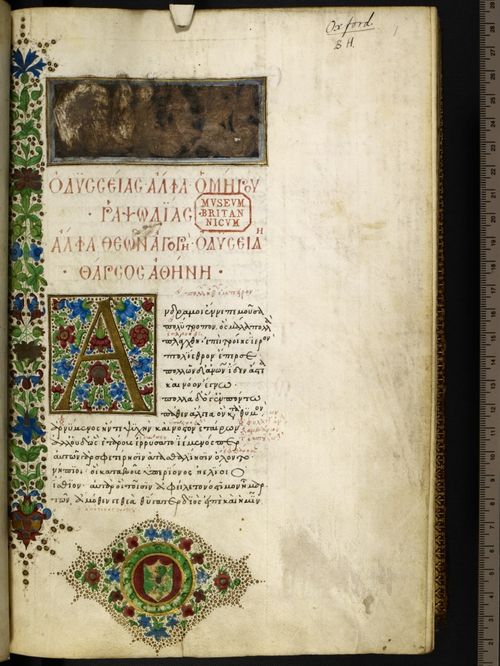 Oxford.
B.H.
ὈΔΥΣΣΕΊΑΣ ἌΛΦΑ ὉΜΉΡΟΥ
· ῬΑΨΩΔΊΑΣ ·
MVSEVM
BRITAN
NICVM
ἌΛΦΑ ΘΕΩΝ ἈΓΟΡῊ· ὈΔΥΣΕΙΔΗ
· ΘΆΡΣΟΣ ἈΘΉΝΗ ·
Ἄνδρα μοι ἔννεπε μοῦσα
πολύτροπον, ὃς μάλα πολλὰ
πλάγχθη· ἐπεὶ τροίης ἱερὸν
πτολίεθρον ἔπερσε
πολλῶν δ' ἀνων ἴδεν ἄστεα
καὶ νόον ἔγνω·
πολλὰ δ' ὅγ' ἐν πόντω
πάθεν ἄλγεα ὃν κατὰ θυμὸν
ἀρνύμενος ἥν τε ψυχὴν καὶ νόστον ἑταίρων
ἀλλ' οὐδ' ὣς ἑτάρους ἐρρύσατο ἱέμενός περ
αὐτῶν γὰρ σφετέρησιν ἀτασθαλίησιν ὄλοντο
νήπιοι· οἳ κατὰ βοῦς ὑπερίονος ἠελίοιο
ἤσθιον· αὐτὰρ ὁ τοῖσιν ἀφείλετο νόστιμον ἦμαρ
τῶν ἁμόθεν γε θεὰ θύγατερ διὸς εἰπὲ καὶ ἡμῖν